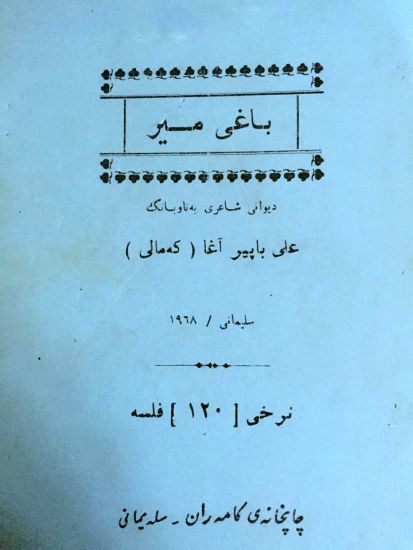 باغی میر
دیوانی شاعری بەناوبانگ
علی باپیر آغا ( کەمالی )
سلیمانی / ١٩٦٨
نرخی [ ١٢٠ ] فلسه
چاپخانەی کامەران - سلەیمانی